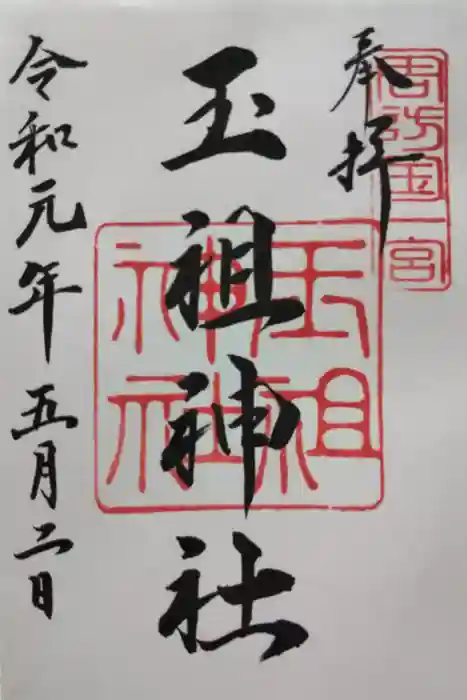 奉拝
周防国一宮
玉祖神社
玉祖神社
令和元年五月二日